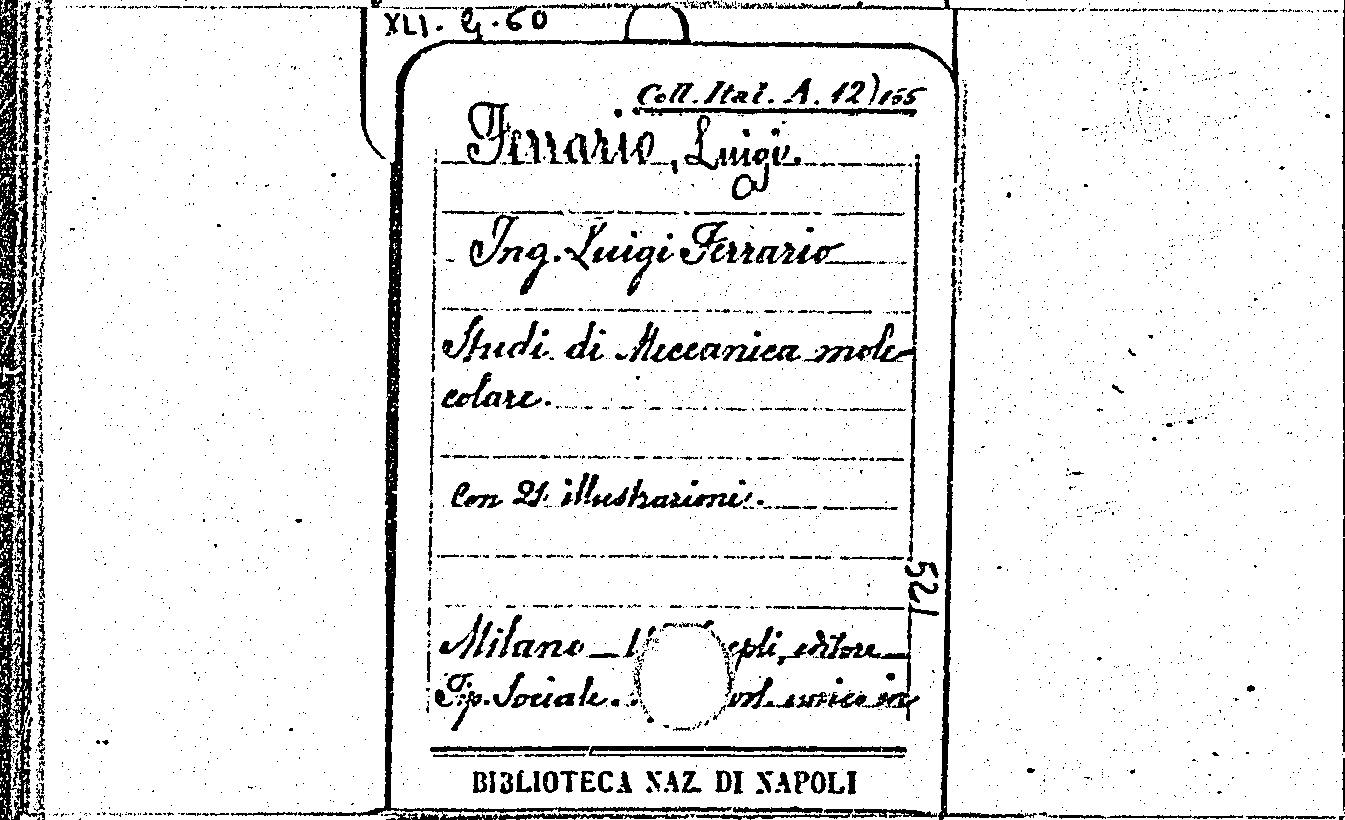 XLI. G. 60
Coll. Ital. A. 12) 155
Ferrario, Luigi.
Ing. Luigi Ferrario
Studi di Meccanica mole-
colare.
Con 21 illustrazioni.
521
Milano — epli, editore
Tip. Sociale. vol. unico in
BIBLIOTECA NAZ. DI NAPOLI